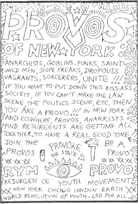 PROVOS
OF NEW YORK
ANARCHISTS, GOBLINS, PUNKS, SAINTS
WILD MEN, DOPE FREAKS, DROPOUTS
VAGRANTS, SORCERERS, UNITE !!!
IF YOU WANT TO PUT DOWN THIS
SOCIETY IF YOU CAN'T MAKE THE
SCENE, THE POLITICS SCENE, ETC. THEN
YOU ARE A PROVO !!! IN NEW YORK
AND ELSEWHERE, PROVOS, ANARCHISTS
AND RESURGENTS ARE GETTING ALL
TOGETHER TO HAVE A REAL GOOD TIME
JOIN THE
PROVOS
PROVOKE
BE A
PROVO
RYM
RESURGENCE YOUTH MOVEMENT
NEW YORK CHICAGO LONDON EARTH
WORLD REVOLUTION OF YOUTH